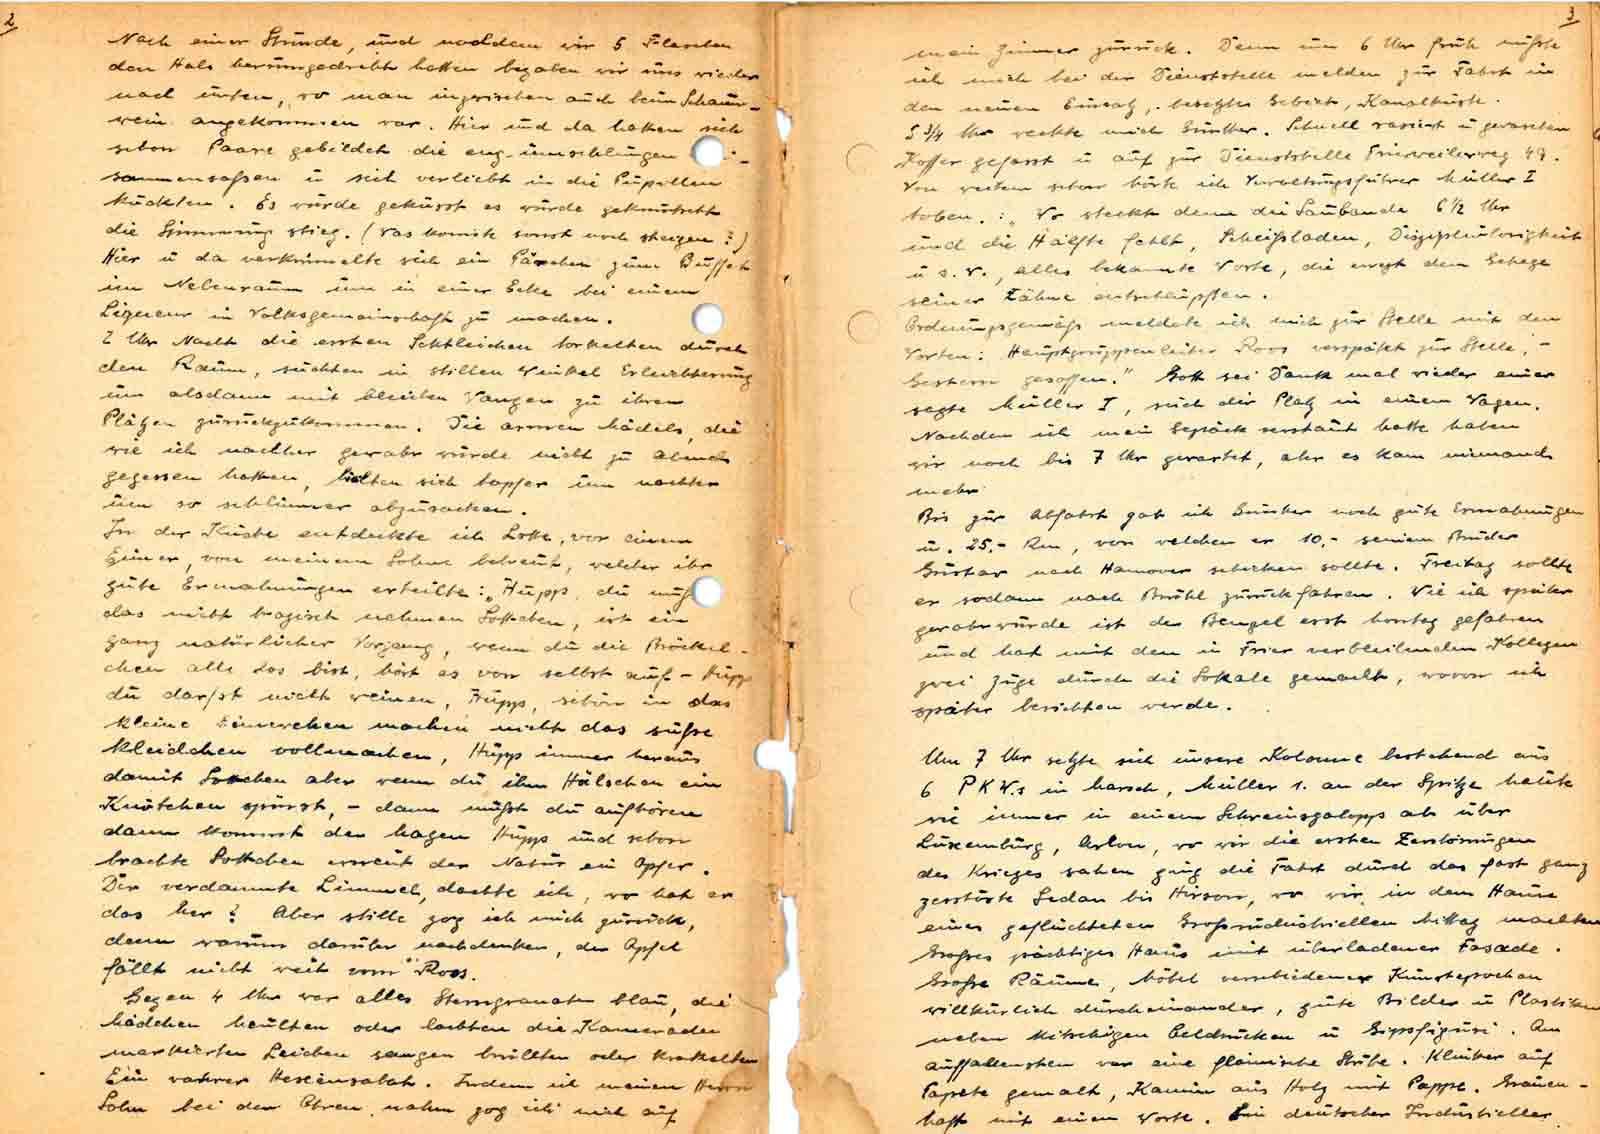 2
Nach einer Stunde, und nachdem wir 5 Flaschen
den Hals herumgedreht hatten begaben wir uns wieder
nach unten, wo man inzwischen auch beim Schaum-
wein angekommen war. Hier und da hatten sich
schon Paare gebildet die eng umschlungen
sammensaßen u sich verliebt in die Pupillen
kuckten. Es wurde geküsst es wurde geknutscht
die Stimmung stieg. (Was konnte sonst noch steigen?)
Hier u da verkrümelte sich ein Pärchen zum Buffet
im Nebenraum um in einer Ecke bei einem
Liqueur in Volksgemeinschaft zu machen.
2 Uhr Nacht die ersten Schleichen torkelten durch
den Raum, suchten in stillen Winkel Erleichterung
um alsdann mit bleichen Wangen zu ihren
Plätzen zurückzukommen. Die armen Mädels, die
wie ich nachher gewahr wurde nicht zu Abend
gegessen hatten, hielten sich tapfer um nachher
um so schlimmer abzusacken.
In der Küche entdeckte ich Lotte, vor einem
Eimer, von meinem Sohne betreut, welcher ihr
gute Ermahnungen erteilte: „Hüpp, du muß
das nicht tragisch nehmen Lottchen, ist ein
ganz natürlicher Vorgang, wenn du die Bröckel-
chen alle los bist, hört es von selbst auf – Hüpp
du darfst nicht weinen, Hüpp, schön in das
kleine Eimerchen machen nicht das süße
Kleidchen vollmachen, Hüpp immer heraus
damit Lottchen aber wenn du ihm Hälschen ein
Knötchen spürst, – dann mußt du aufhören
dann kommst der Magen Hüpps und schon
brachte Lottchen erneut der Natur ein Opfer.
Der verdammte Lümmel, dachte ich, wo hat er
das her? Aber stille zog ich mich zurück,
denn warum darüber nachdenken, der Apfel
fällt nicht weit vom Roos.
Gegen 4 Uhr war alles Sterngranaten blau, die
Mädchen heulten oder lachten die Kameraden
markierten Leichen sangen brüllten oder krakelten
Ein wahrer Hexensabat. Indem ich meinen Herrn
Sohn bei den Ohren nahm zog ich mich auf
3
mein Zimmer zurück. Denn um 6 Uhr früh mußte
ich mich bei der Dienststelle melden zur Fahrt in
den neuen Einsatz, besetztes Gebiet, Kanalküste.
5 3/4 Uhr weckte mich Günther. Schnell rasiert u gewaschen
Koffer gefasst u auf zur Dienststelle 49.
Von weitem schon hörte ich Verwaltungsführer Müller I
toben.: „Wo steckt denn die Saubande 6 1/2 Uhr
und die Hälfte fehlt, Scheißladen, Disziplinlosigkeit
u.s.w., alles bekannte Worte, die ewigst dem Gehege
seiner Zähne entschlüpften.
Ordnungsgemäß meldete ich mich zur Stelle mit den
Worten: Hauptgruppenleiter Roos verspätet zur Stelle, –
Gestern gesoffen." Gott sei Dank mal wieder einer
sagte Müller I, such dir Platz in einem Wagen.
Nachdem ich mein Gepäck verstaut hatte haben
wir noch bis 7 Uhr gewartet, aber es kam niemand
mehr
Bis zur Abfahrt gab ich Günther noch gute Ermahnungen
u. 25.- Rm, von welchen er 10,- seinem Bruder
Gustav nach Hannover schicken sollte. Freitag sollte
er sodann nach Brühl zurückfahren. Wie ich später
gewahrwurde ist der Bengel erst Montag gefahren
und hat mit den in Trier verbleibenden Kollegen
zwei Züge durch die Lokale gemacht, wovon ich
später berichten werde.
Um 7 Uhr setzte sich unsere Kolonne bestehend aus
6 PKW.s in Marsch, Müller 1. an der Spitze haute
wie immer in einem Schweinsgalopps ab über
Luxemburg, Arlon, wo wir die ersten Zerstörungen
des Krieges sahen ging die Fahrt durch das fast ganz
zerstörte Sedan bis Hirson, wo wir in dem Hause
eines geflüchteten Großindustriellen Mittag machten
Großes prächtiges Haus mit überladener Fasade.
Große Räume, Möbel verschiedener Kunstepochen
willkürlich durcheinander, gute Bilder u Plastiken
neben kitschigen Öeldrucken u Gipsfiguri. Am
auffallensten war eine flämische Stube. Klinker auf
Tapete gemalt, Kamin aus Holz mit Pappe. Grauen-
haft mit einem Worte. Ein deutscher Industrieller